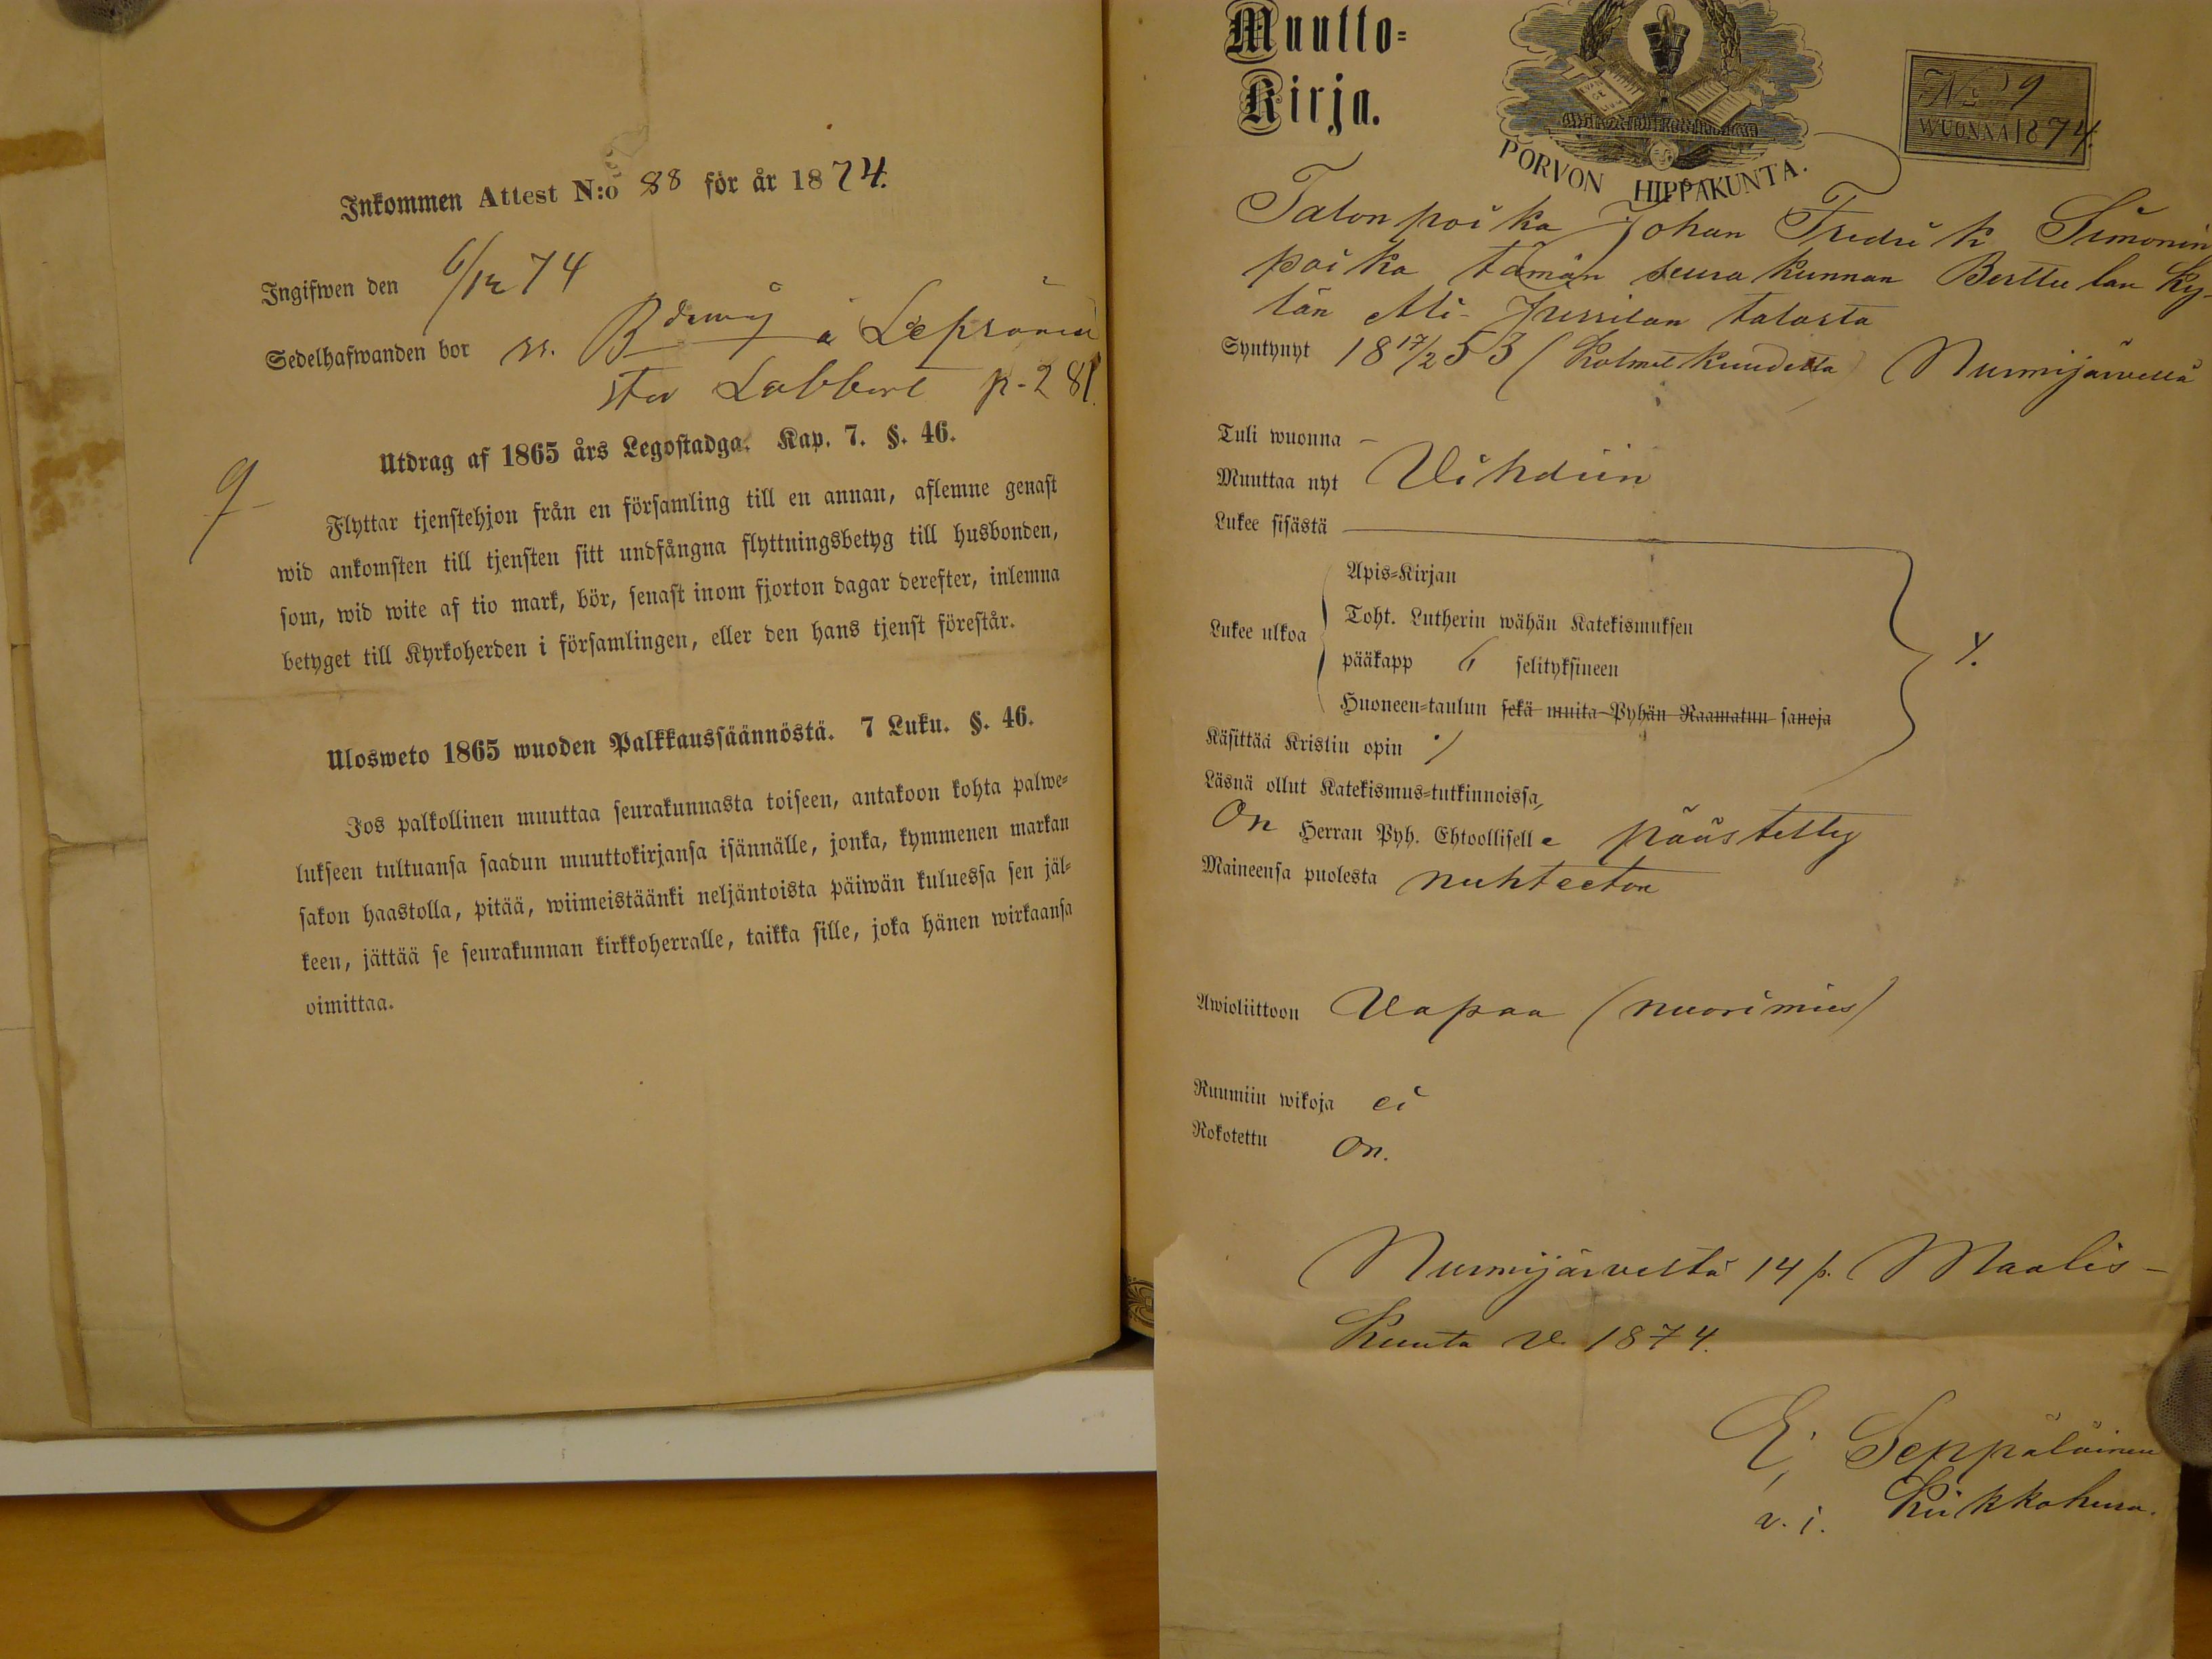 Inkommen Attest N:o 88 för år 1874.
Ingifwen den 6/12 74
Sedelhafwanden bor
p. 281.
Utdrag af 1865 års Legostadga. Kap. 7. §. 46.
Flyttar tjenstehjon från en församling till en annan, aflemne genast
wid ankomsten till tjensten sitt undfångna flyttningsbetyg till husbonden,
som, wid wite af tio mark, bör, senast inom fjorton dagar derefter, inlemna
betyget till Kyrkoherden i församlingen, eller den hans tjenst förestår.
Ulosweto 1865 wuoden Palkkaussäännöstä. 7 Luku. §. 46.
Jos palkollinen muuttaa seurakunnasta toiseen, antakoon kohta palwe-
lukseen tultuansa saadun muuttokirjansa isännälle, jonka, kymmenen markan
sakon haastolla, pitää, wiimeistäänki neljäntoista päiwän kuluessa sen jäl-
keen, jättää se seurakunnan kirkkoherralle, taikka sille, joka hänen wirkaansa
oimittaa.
Muutto-
Kirja.
PORVON HIPPAKUNTA.
No 9
WUONNA 1874.
Talonpoika Johan Fredrik Simonin
poika tämän seurakunnan Berttulan Ky-
län Ali-Jussilan talosta
Syntynyt 18 17/2 53 (kolmekuudetta) Nurmijärvellä
Tuli wuonna –
Muuttaa nyt Vihdiin
Lukee sisästä
Lukee ulkoa
Apis-Kirjan
Toht. Lutherin wähän Katekismuksen
pääkapp 6 selityksineen
Huoneen-taulun sekä muita Pyhän Raamatun sanoja
Käsittää Kristin opin
Läsnä ollut Katekismus-tutkinnoissa,
On Herran Pyh. Ehtoolliselle päästetty
Maineensa puolesta nuhteeton
Awioliittoon Vapaa (nuorimies)
Ruumiin wikoja ei
Rokotettu on.
Nurmijärveltä 14 p. Maalis-
kuuta v. 1874.
E. Seppäläinen
v. i. Kirkkoherra.